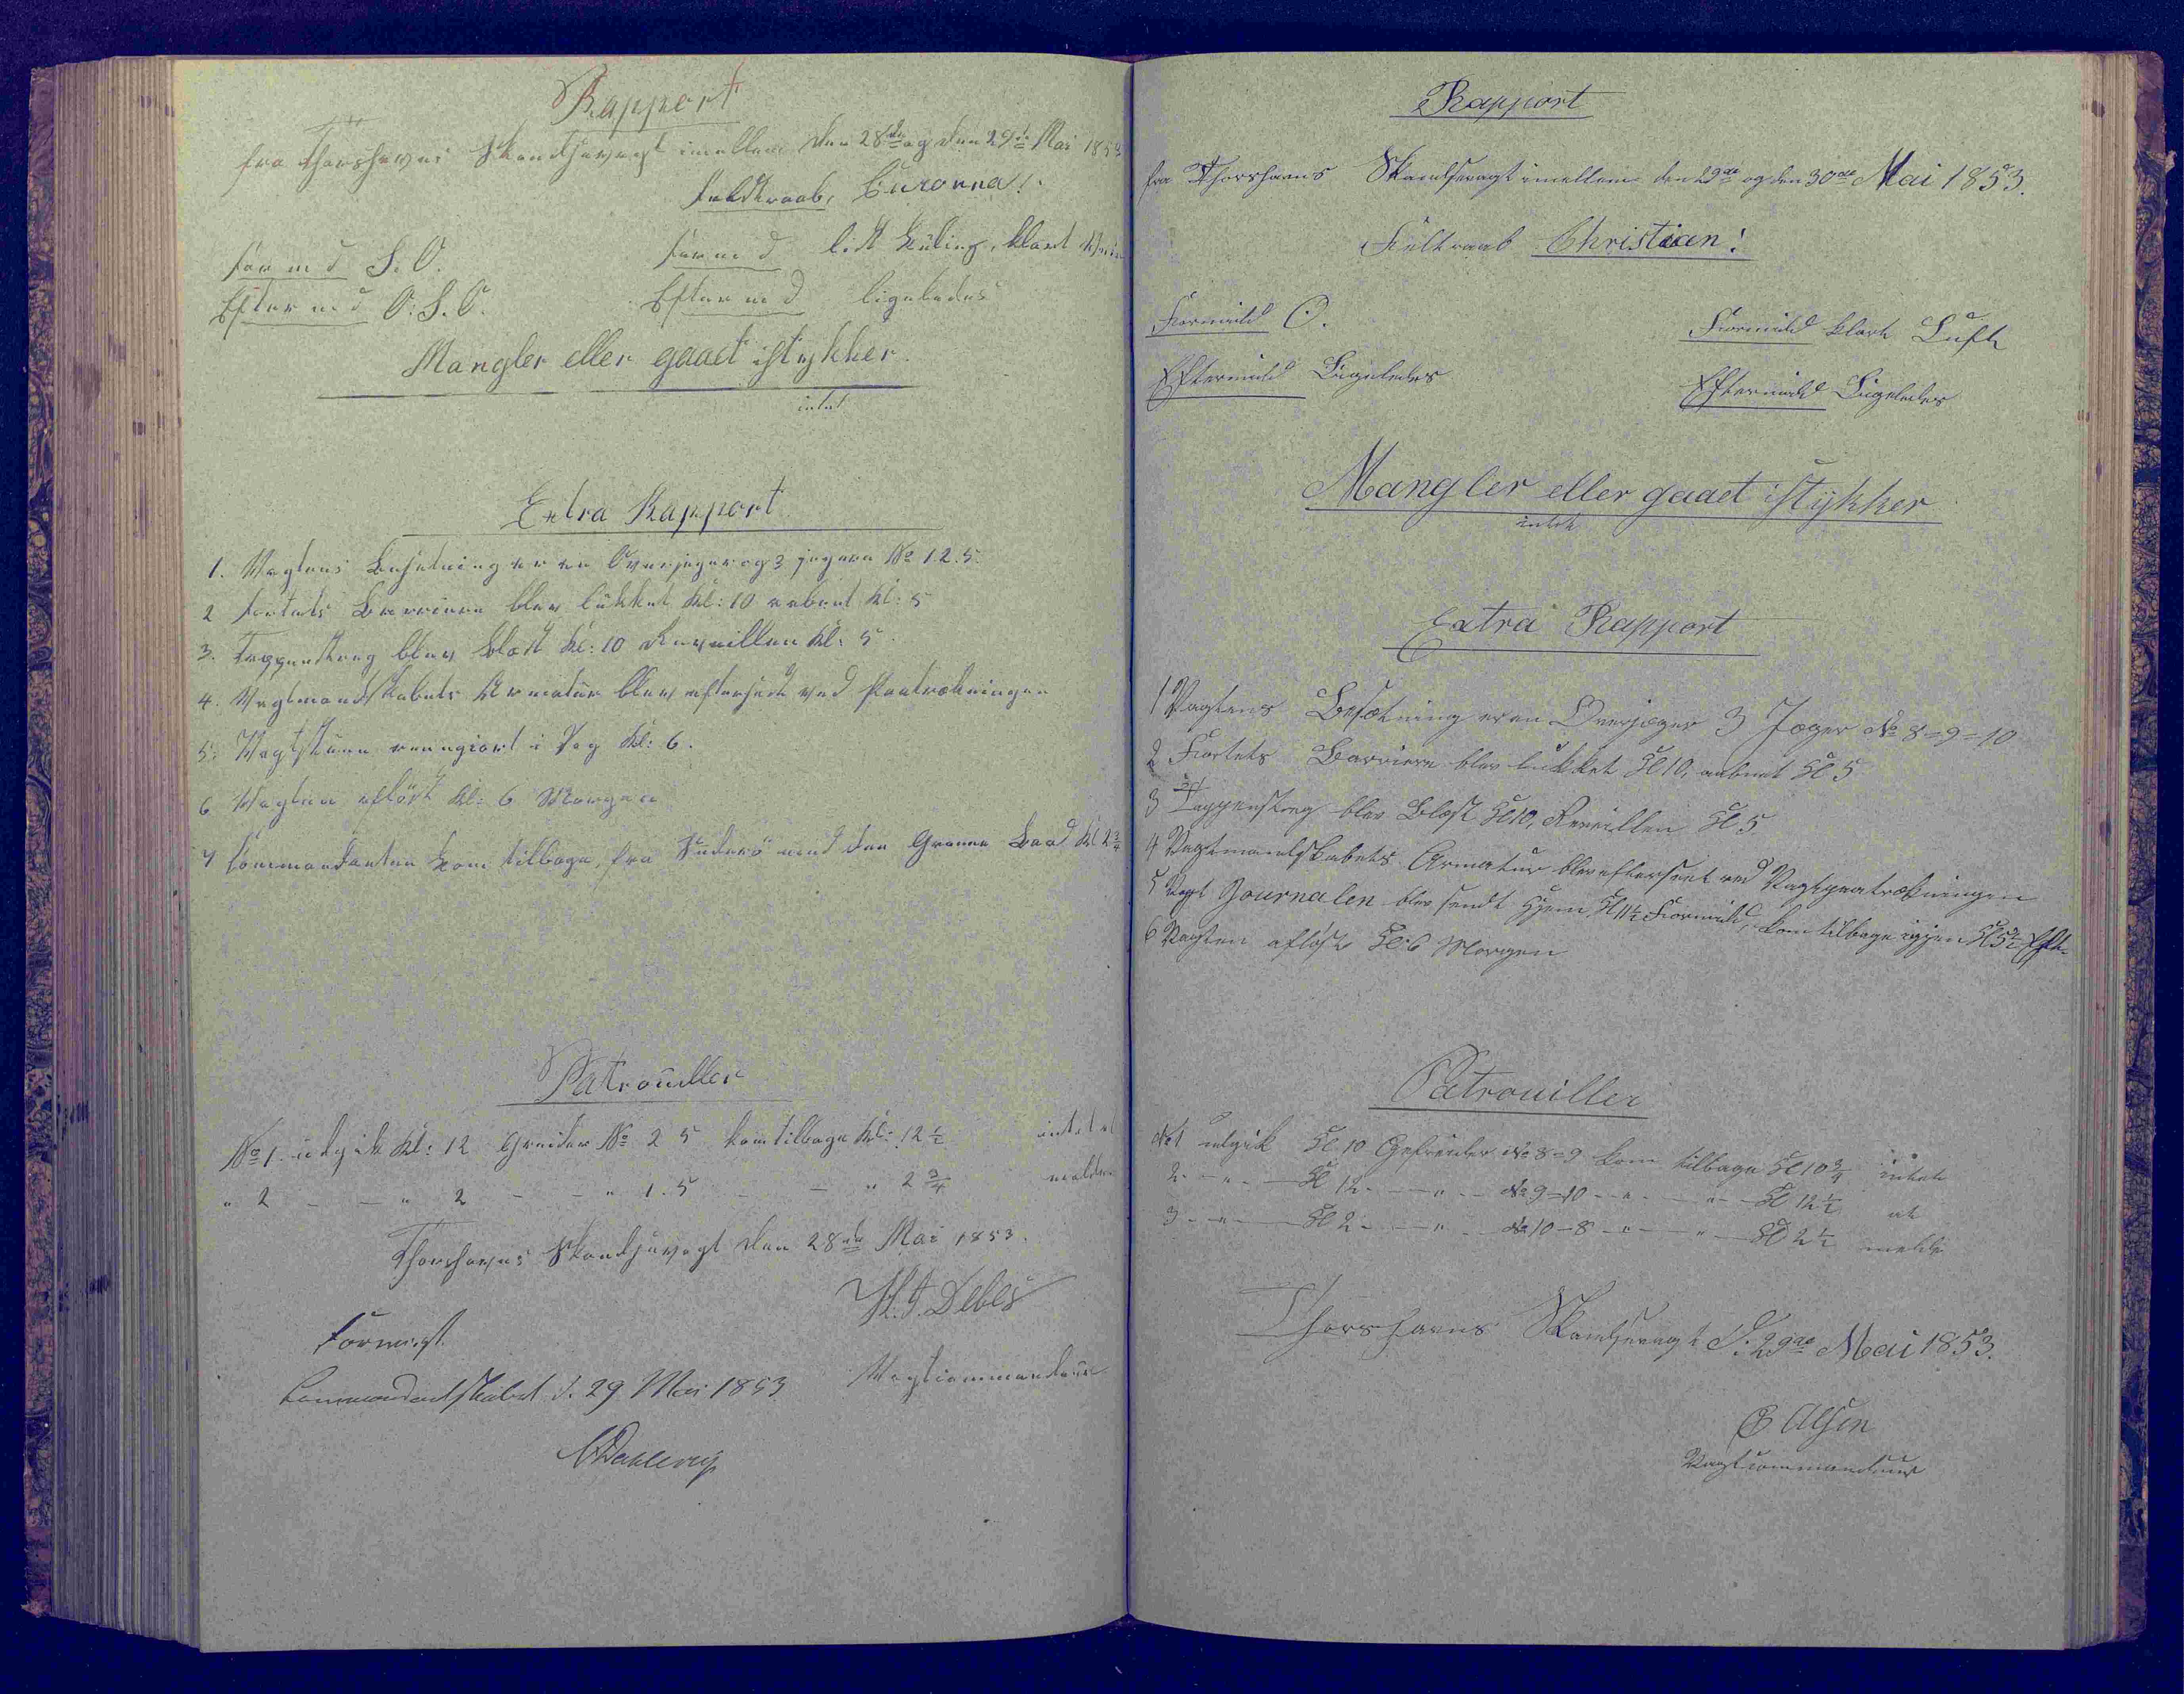 Rapport
fra Thorshavns Skandsevagt imellem den 28de og den 29de Mai 1853
Feldtraab,
Form d S. O.
Form d lidt Kuling, klart
Efter m d O. S. O.
Efter m d ligeledes
Mangler eller gaaet istykker.
intet
Extra Rapport
1. Vagtens Besetning er en Overjeger og 3 jegere No 1.2.5.
2 Fortets Barriere blev lukket Kl: 10 aabnet Kl: 5
3. Tappenstreg blev blæst Kl: 10 Reveillen Kl: 5.
4. Vagtmandskabets Armatur blev efterseet ved Paatrækningen
5. Vagtstuen reengiort i Dag Kl: 6.
6 Vagten afløst Kl: 6 Morgen
7 Commandanten kom tilbage, fra Suderö med den Grønne Baad Kl 2 3/4
Patrouiller
No 1. udgik Kl: 12 Gfreider No 2 5 kom tilbage Kl: 12 1/2 intet at
" 2 - - " 2 - - " 1. 5 - - " 2 3/4 melde
Thorshavns Skandsevagt den 28de Mai 1853.
H. J. Debes
Vagtcommandeur
Forevist.
Commandantskabet d. 29 Mai 1853
CDahlerup
Rapport
fra Thorshavns Skandsevagt imellem den 29de og den 30de Mai 1853.
Feltraab Christian!
Formidd O.
Formidd klart Luft
Eftermidd Ligeledes
Eftermidd Ligeledes
Mangler eller gaaet istykker
intet
Extra Rapport
1 Vagtens Besætning er en Overjæger 3 Jæger No 8=9=10
2 Fortets Barriere blev lukket Kl 10, aabnet Kl 5
3 Tappenstreg blev Blæst Kl 10, Reveillen Kl 5
4 Vagtmandskabets Armatur blev efterseet ved Vagtpaatrækningen
5 Vagt Journalen blev sendt Hjem Kl 11 1/2 Formidd, kom tilbage igjen Kl 5 1/2 Eft.
6 Vagten afløst Kl: 6 Morgen
Patrouiller
No 1 udgik Kl 10 Gefreider No 8=9 kom tilbage Kl 10 3/4 intet
2 - " - Kl 12 - " - No 9=10 - " - " - Kl 12 1/2 at
3 - " - Kl 2 - " - No 10-8 - " - " - Kl 2 1/2 melde
Thorshavns Skandsevagt d: 29de Mai 1853.
Olsen
Vagtcommandeur